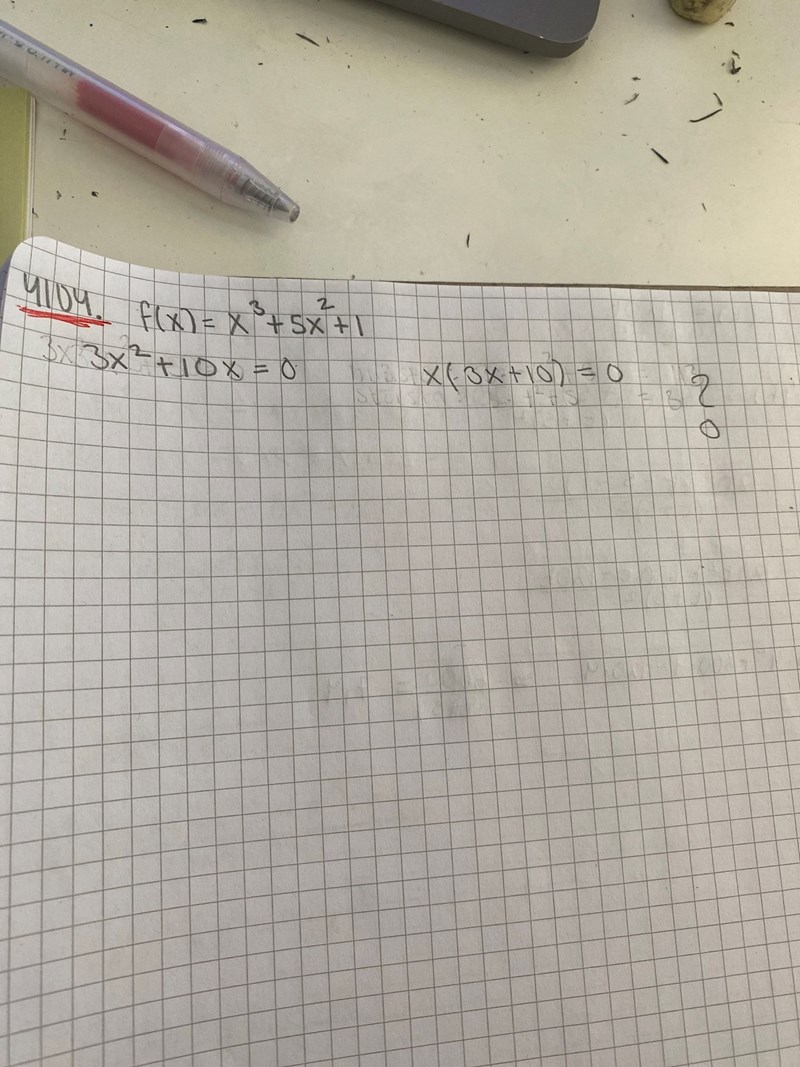 4104. f(x) = x³ + 5x² + 1
3x² + 10x = 0 x(3x+10) = 0 ?